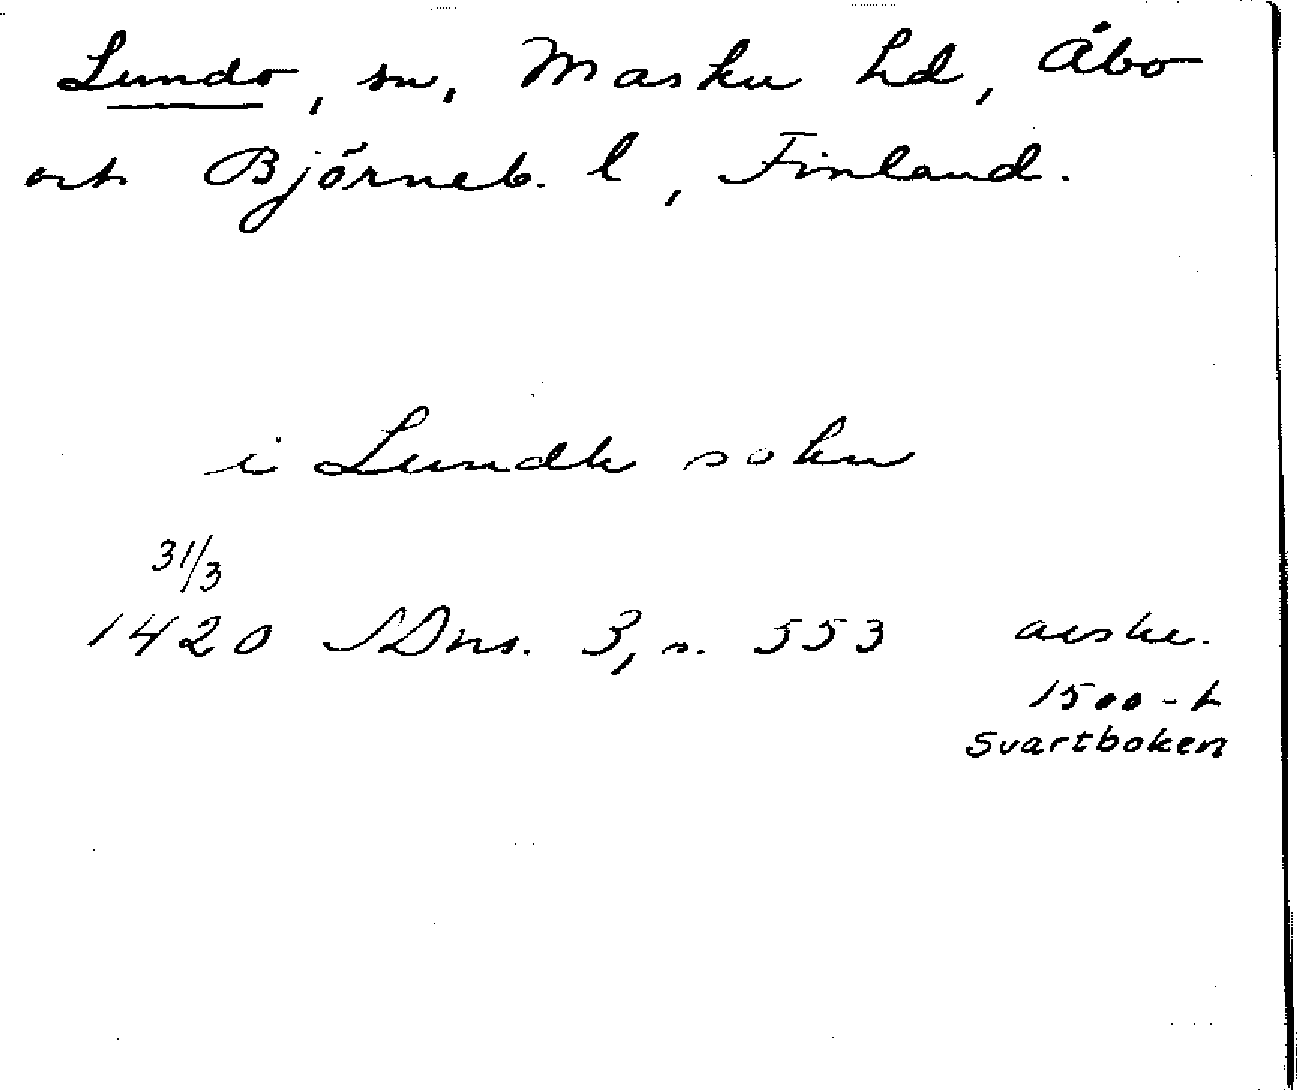 Lundo, sn, Masku hd, Åbo
och Björneb. l, Finland.
i Lundh sokn
31/3
1420 SDns. 3, s. 553 avskr.
1500-t
Svartboken